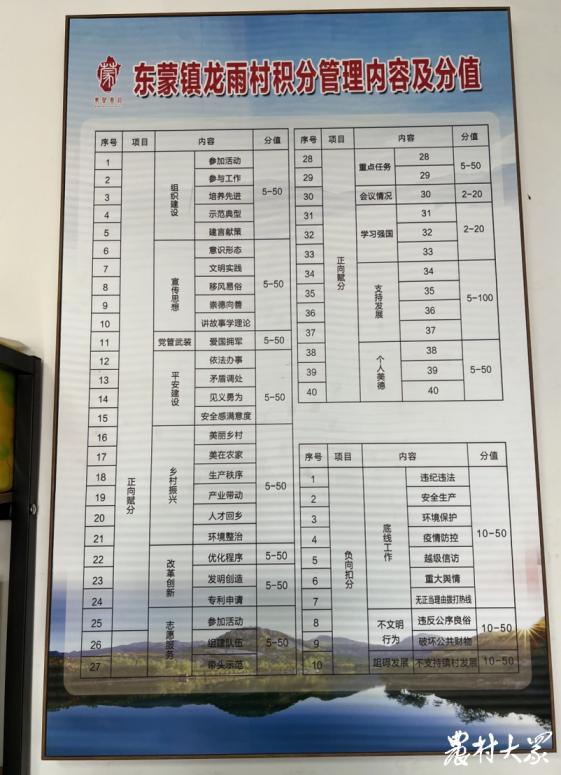 东蒙镇龙雨村积分管理内容及分值
序号 项目 内容 分值
1 正向赋分 组织建设 参加活动 5-50
2 参与工作
3 培养先进
4 示范典型
5 建言献策
6 宣传思想 意识形态 5-50
7 文明实践
8 移风易俗
9 崇德向善
10 讲故事学理论
11 党管武装 爱国拥军 5-50
12 平安建设 依法办事 5-50
13 矛盾调处
14 见义勇为
15 安全感满意度
16 乡村振兴 美丽乡村 5-50
17 美在农家
18 生产秩序
19 产业带动
20 人才回乡
21 环境整治
22 改革创新 优化程序 5-50
23 发明创造 5-50
24 专利申请
25 志愿服务 参加活动 5-50
26 组建队伍
27 带头示范
序号 项目 内容 分值
28 正向赋分 重点任务 28 5-50
29 29
30 会议情况 30 2-20
31 学习强国 31 2-20
32 32
33 33
33 支持发展 34 5-100
34 35
35 36
36 37
37
38 个人美德 38 5-50
39 39
40 40
序号 项目 内容 分值
1 负向扣分 底线工作 违纪违法 10-50
2 安全生产
3 环境保护
4 疫情防控
5 越级信访
6 重大舆情
7 无正当理由拨打热线
8 不文明行为 违反公序良俗 10-50
9 破坏公共财物
10 阻碍发展 不支持镇村发展 10-50
农村大众